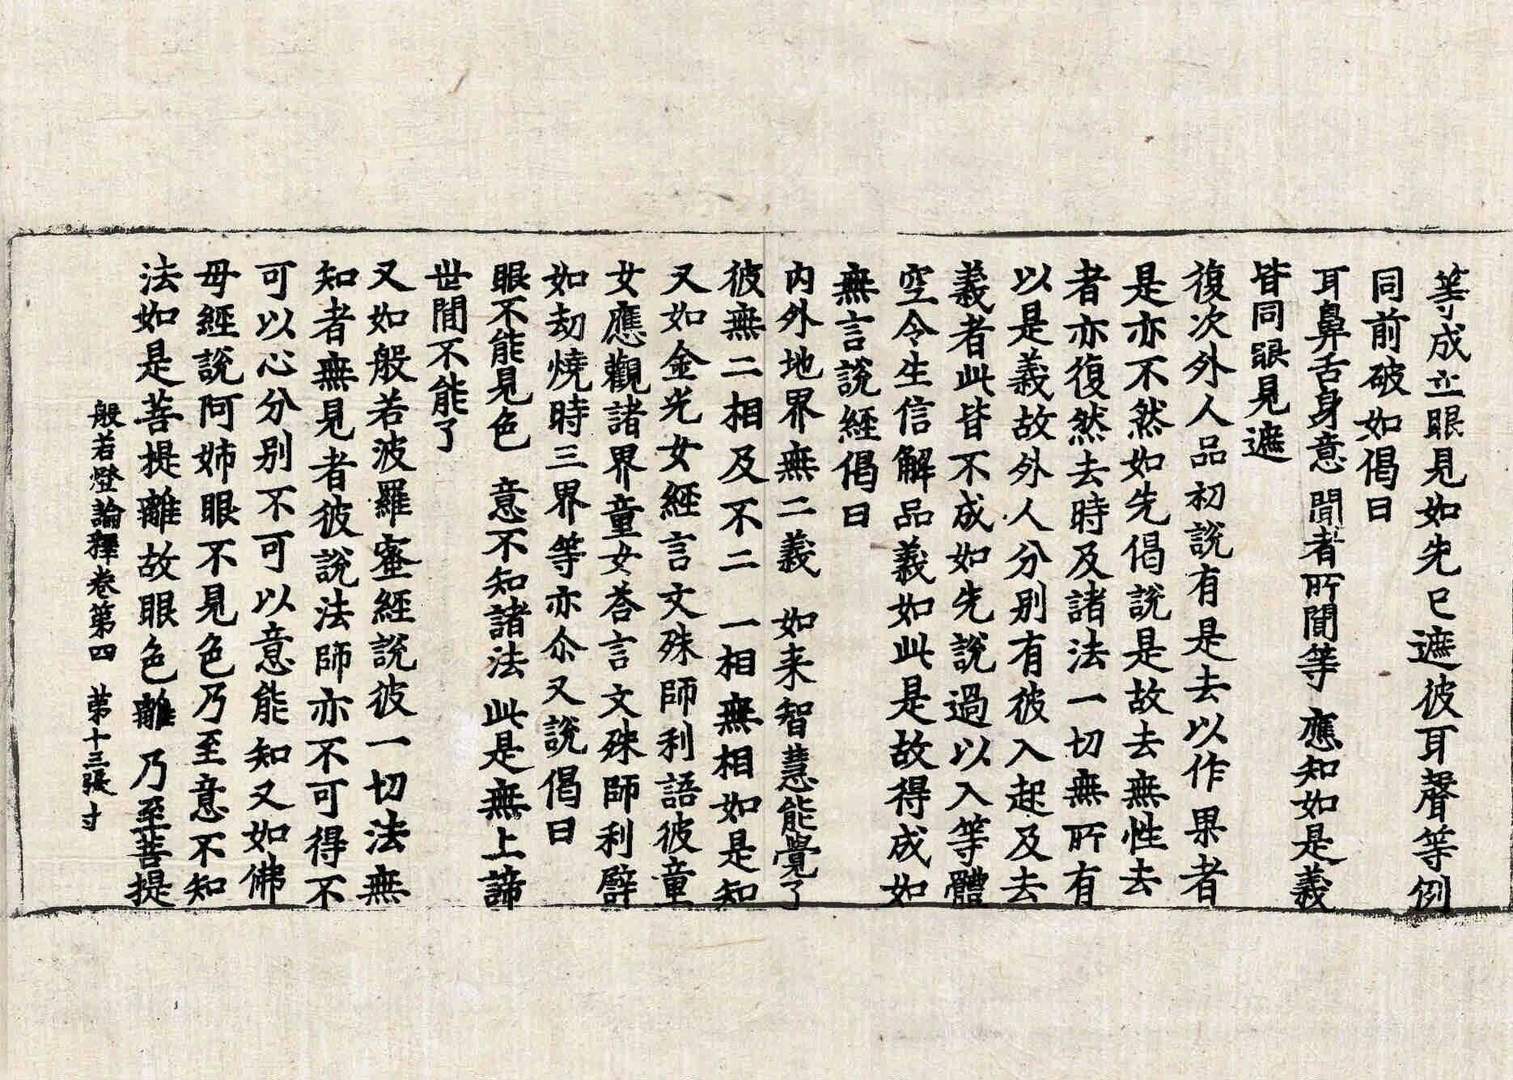 等成立眼見如先已遮彼耳聲等例
同前破如偈曰
耳鼻舌身意 聞者所聞等 應知如是義
皆同眼見遮
復次外人品初說有是去以作果者
是亦不然如先偈說是故去無性去
者亦復然去時及諸法一切無所有
以是義故外人分別有彼入起及去
義者此皆不成如先說過以入等體
空令生信解品義如此是故得成如
無言說經偈曰
內外地界無二義 如来智慧能覺了
彼無二相及不二 一相無相如是知
又如金光女經言文殊師利語彼童
女應觀諸界童女荅言文殊師利譬
如劫燒時三界等亦尒又說偈曰
眼不能見色 意不知諸法 此是無上諦
世間不能了
又如般若波羅蜜經說彼一切法無
知者無見者彼說法師亦不可得不
可以心分別不可以意能知又如佛
母經說阿姉眼不見色乃至意不知
法如是菩提離故眼色離乃至菩提
般若燈論釋卷第四 第十三張 寸